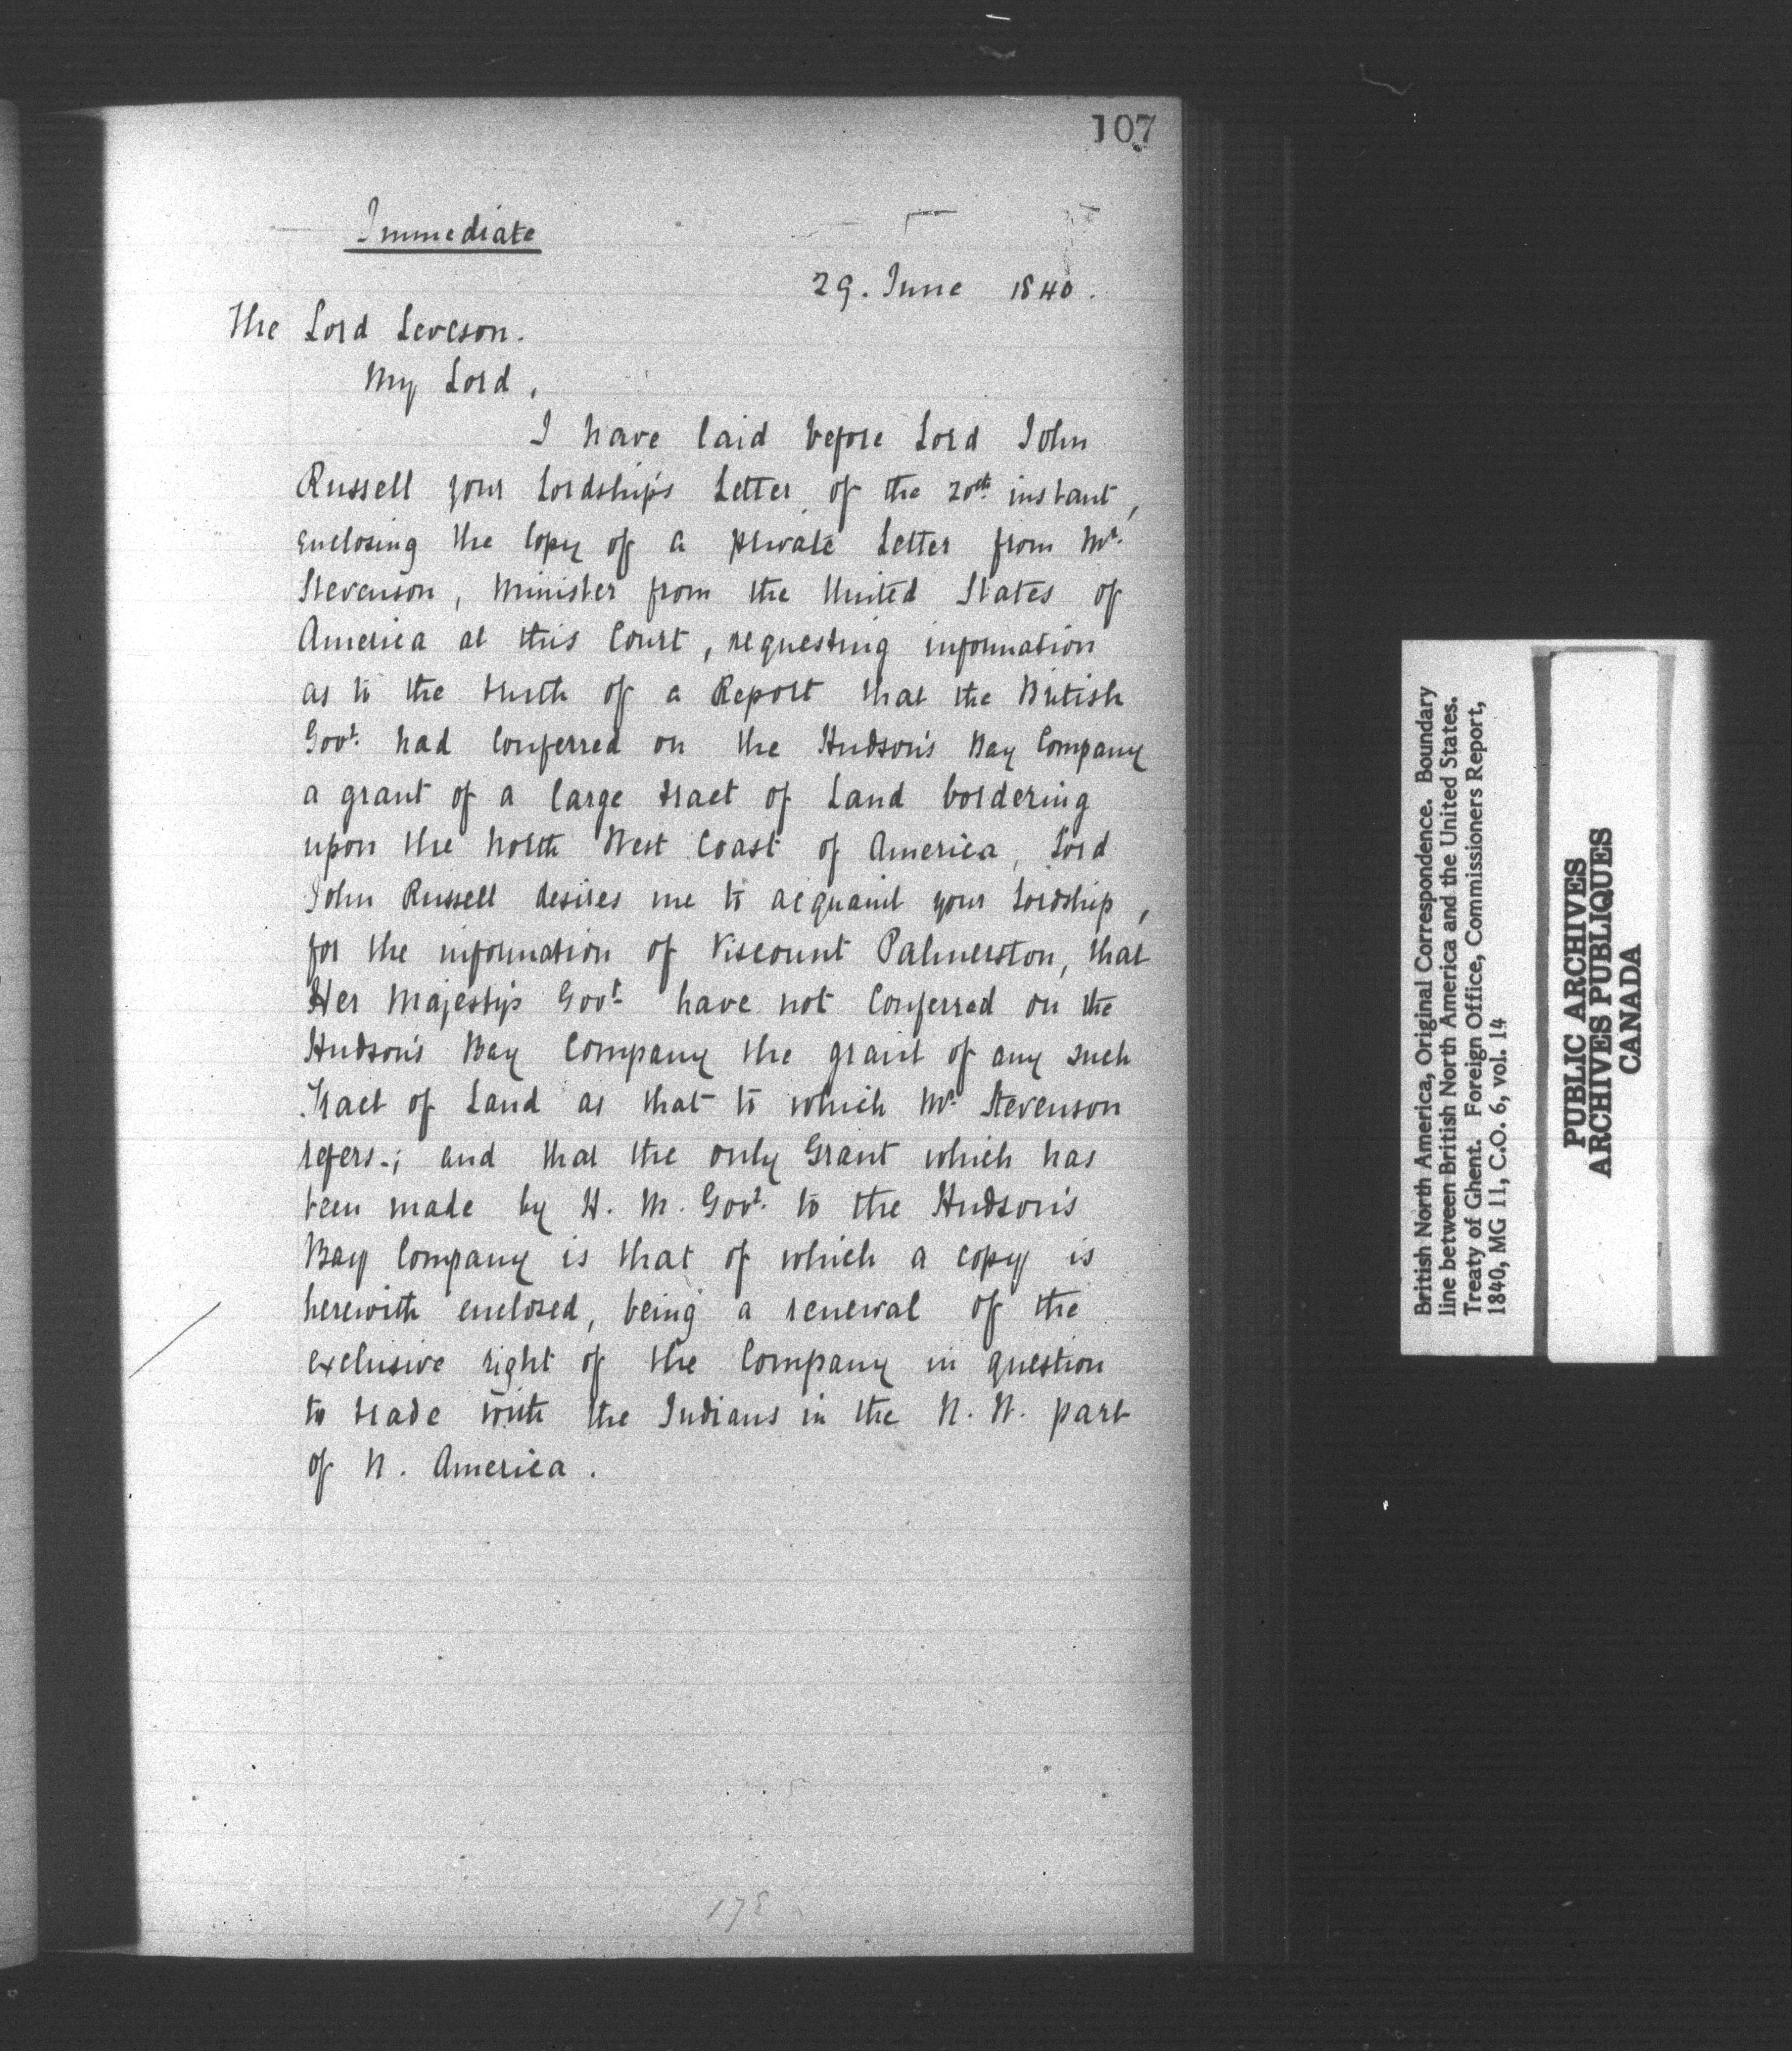 107
Immediate
29. June 1840.
The Lord Leveson.
My Lord,
I have laid before Lord John
Russell your Lordship's Letter of the 20th instant,
enclosing the Copy of a private Letter from Mr.
Stevenson, Minister from the United States of
America at this Court, requesting information
as to the truth of a Report that the British
Govt. had Conferred on the Hudson's Bay Company
a grant of a large tract of Land bordering
upon the North West Coast of America, Lord
John Russell desires me to acquaint your Lordship,
for the information of Viscount Palmerston, that
Her Majesty's Govt. have not Conferred on the
Hudson's Bay Company the grant of any such
Tract of Land as that to which Mr. Stevenson
refers.; and that the only Grant which has
been made by H. M. Govt. to the Hudson's
Bay Company is that of which a copy is
herewith enclosed, being a renewal of the
exclusive right of the Company in question
to trade with the Indians in the N. W. part
of N. America.
British North America, Original Correspondence. Boundary
line between British North America and the United States.
Treaty of Ghent. Foreign Office, Commissioners Report,
1840, MG 11, C.O. 6, vol. 14
PUBLIC ARCHIVES
ARCHIVES PUBLIQUES
CANADA